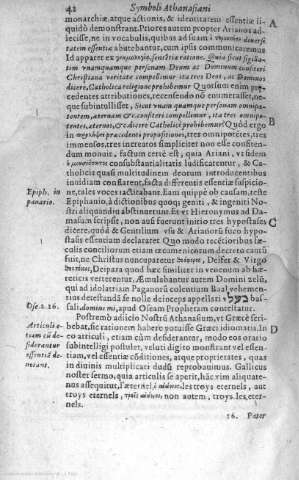 42 Symboli Athanasiani
monarchiæ atque actionis, & identitatem essentiæ si-
quidò demonstrant. Priores autem propter Arianos ad-
iecisse, ne in vocabulis, quibus ad suam diuer-
tatem essentiæ abutebantur, cum ipsis communicaremus
Id apparet ex sententiæ ratione. Quia sicut sigilla-
tim vnamquamque personam Deum ac Dominum confiteri
Christiana veritate compellimur ita tres Deos, ac Dominos
dicere, Catholica religione prohibemur Quorsum enim præ-
cedentes attributiones, recensendo nō enumerasset, ne-
que subintulisset, Sicut vnam quamque personam omnipo-
tentem, æternam & confiteri compellimur, ita tres omnipoten-
tes, æternos, & dicere Catholici prohibemur? Quod ergo
in præcedentis propositionis, tres omnipotentes, tres
immensos, tres increatos simpliciter non esse confiten-
dum monuit, factum certè est, quia Ariani, vt fidem
consubstantialitatis ludificarentur, & Ca-
tholicis quasi multitudinem deorum introducentibus
inuidiam conflarent, facta differentis essentiæ suspicio-
ne, tales voces iactitabant. Ex qua quippè ob causam, teste
Epiphanio, à dictionibus quoque geniti, & ingeniti No-
stri aliquandiu abstinuerunt. Et vt Hieronymus ad Da-
masum scripsit, non ausi fuerunt initio tres hypostases
dicere, quòd & Gentilium vsu & Arianorū fuco hypo-
stasis essentiam declararet Quo modo recētioribus sæ-
culis conciliorum etiam œcumenicorum decreto cautū
fuit, ne Christus nuncuparetur Deifer & Virgo
Deipara quod hæc similiter in venenum ab hæ-
reticis verterentur. Æmulabantur autem Domini zelū,
qui ad idolatriam Paganorū colentium Baal, vehemen-
tius detestandā se nolle deinceps appellari בעלי baa-
sali, domini mi, apud Oseam Prophetam contestatur.
Postremò adiicio Nostrū Athanasium, vt Græcè scri-
bebat, sic rationem habere potuisse Græci idiomatis. In
eo articuli, etiam cùm desiderantur, modo eos oratio
subintelligi postulet, veluti digito monstrant vel essen-
tiam, vel essentiæ cōditiones, atque proprietates, quas
in diuinis multiplicari dudū reprobauimus. Gallicus
noster sermo, quia articulis se aperit, hāc vim aliquate-
nus assequitur, l'æternel, les troys eternels, aut
troys eternels, non autem, troys, les eter-
nels.
16. Pater
A
B
C
D
Epiph. in
panario.
Ose. 2. 16.
Articuli e-
tiam cū de-
siderantur
essentiā de-
notant.